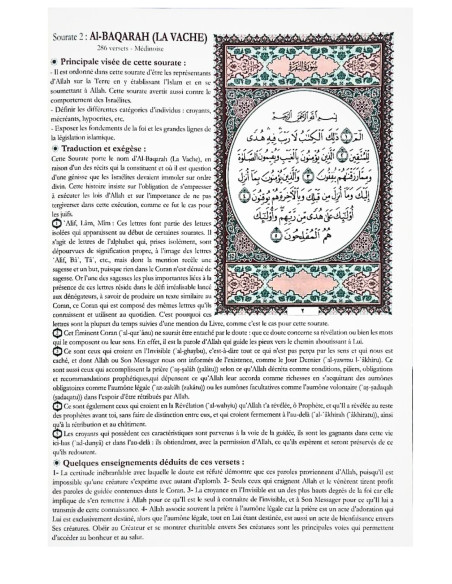 Sourate 2 : Al-BAQARAH (LA VACHE)
286 versets - Médinoise
Principale visée de cette sourate :
- Il est ordonné dans cette sourate d'être les représentants
d'Allah sur la Terre en y établissant l'Islam et en se
soumettant à Allah. Cette sourate avertit aussi contre le
comportement des Israélites.
- Définir les différentes catégories d'individus : croyants,
mécréants, hypocrites, etc.
- Exposer les fondements de la foi et les grandes lignes de
la législation islamique.
Traduction et exégèse :
Cette Sourate porte le nom d'Al-Baqarah (La Vache), en
raison d'un des récits qui la constituent et où il est question
d'une génisse que les Israélites devaient immoler sur ordre
divin. Cette histoire insiste sur l'obligation de s'empresser
à exécuter les lois d'Allah et sur l'importance de ne pas
tergiverser dans cette exécution, comme ce fut le cas pour
les juifs.
1 'Alif, Lâm, Mîm : Ces lettres font partie des lettres
isolées qui apparaissent au début de certaines sourates. Il
s'agit de lettres de l'alphabet qui, prises isolément, sont
dépourvues de signification propre, à l'image des lettres
'Alif, Bâ', Tâ', etc., mais dont la mention recèle une
sagesse et un but, puisque rien dans le Coran n'est dénué de
sagesse. Or l'une des sagesses les plus importantes liées à la
présence de ces lettres réside dans le défi irréalisable lancé
aux dénégateurs, à savoir de produire un texte similaire au
Coran, ce Coran qui est composé des mêmes lettres qu'ils
connaissent et utilisent au quotidien. C'est pourquoi ces
lettres sont la plupart du temps suivies d'une mention du Livre, comme c'est le cas pour cette sourate.
2 Cet Éminent Coran ('al-qur'ânu) ne saurait être entaché par le doute : que ce doute concerne sa révélation ou bien les mots
qui le composent ou leur sens. En effet, il est la parole d'Allah qui guide les pieux vers le chemin aboutissant à Lui.
3 Ce sont ceux qui croient en l'Invisible ('al-ghaybu), c'est-à-dire tout ce qui n'est pas perçu par les sens et qui nous est
caché, et dont Allah ou Son Messager nous ont informés de l'existence, comme le Jour Dernier ('al-yawmu l-'âkhiru). Ce
sont aussi ceux qui accomplissent la prière ('aṣ-ṣalâh (ṣalâtu)) selon ce qu'Allah décréta comme conditions, piliers, obligations
et recommandations prophétiques, qui dépensent ce qu'Allah leur accorda comme richesses en s'acquittant des aumônes
obligatoires comme l'aumône légale ('az-zakâh (zakâtu)) ou les aumônes facultatives comme l'aumône volontaire ('aṣ-ṣadaqah
(ṣadaqatu)) dans l'espoir d'être rétribués par Allah.
4 Ce sont également ceux qui croient en la Révélation ('al-wahyu) qu'Allah t'a révélée, ô Prophète, et qu'Il a révélée au reste
des prophètes avant toi, sans faire de distinction entre eux, et qui croient fermement à l'au-delà ('al-'âkhirah ('âkhiratu)), ainsi
qu'à la rétribution et au châtiment.
5 Les croyants qui possèdent ces caractéristiques sont parvenus à la voie de la guidée, ils sont les gagnants dans cette vie
ici-bas ('ad-dunyâ) et dans l'au-delà : ils obtiendront, avec la permission d'Allah, ce qu'ils espèrent et seront préservés de ce
qu'ils redoutent.
Quelques enseignements déduits de ces versets :
1- La certitude inébranlable avec laquelle le doute est réfuté démontre que ces paroles proviennent d'Allah, puisqu'il est
impossible qu'une créature s'exprime avec autant d'aplomb. 2- Seuls ceux qui craignent Allah et le vénèrent tirent profit
des paroles de guidée contenues dans le Coran. 3- La croyance en l'Invisible est un des plus hauts degrés de la foi car elle
implique de s'en remettre à Allah pour ce qu'Il est le seul à connaître de l'invisible, et à Son Messager pour ce qu'Il lui a
transmis de cette connaissance. 4- Allah associe souvent la prière à l'aumône légale car la prière est un acte de adoration qui
Lui est exclusivement destiné, alors que l'aumône légale, tout en Lui étant destinée, est aussi un acte de bienfaisance envers
Ses créatures. Obéir au Créateur et se montrer charitable envers Ses créatures sont les principales voies qui permettent
d'accéder au bonheur et au salut.
سورة البقرة
بِسْمِ اللَّهِ الرَّحْمَٰنِ الرَّحِيمِ
الم ١ ذَٰلِكَ الْكِتَابُ لَا رَيْبَ فِيهِ هُدًى
لِّلْمُتَّقِينَ ٢ الَّذِينَ يُؤْمِنُونَ بِالْغَيْبِ وَيُقِيمُونَ الصَّلَاةَ
وَمِمَّا رَزَقْنَاهُمْ يُنفِقُونَ ٣ وَالَّذِينَ يُؤْمِنُونَ بِمَا أُنزِلَ
إِلَيْكَ وَمَا أُنزِلَ مِن قَبْلِكَ وَبِالْآخِرَةِ هُمْ يُوقِنُونَ ٤
أُولَٰئِكَ عَلَىٰ هُدًى مِّن رَّبِّهِمْ وَأُولَٰئِكَ
هُمُ الْمُفْلِحُونَ ٥
٢